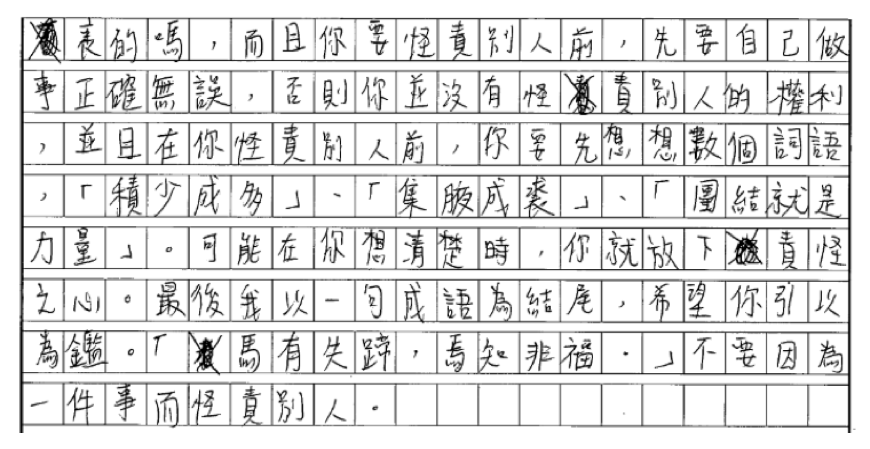 表的嗎，而且你要怪責別人前，先要自己做
事正確無誤，否則你並沒有怪責別人的權利
，並且在你怪責別人前，你要先想想數個詞語
，「積少成多」、「集腋成裘」、「團結就是
力量」。可能在你想清楚時，你就放下責怪
之心。最後我以一句成語為結尾，希望你引以
為鑑。「馬有失蹄，焉知非福。」不要因為
一件事而怪責別人。